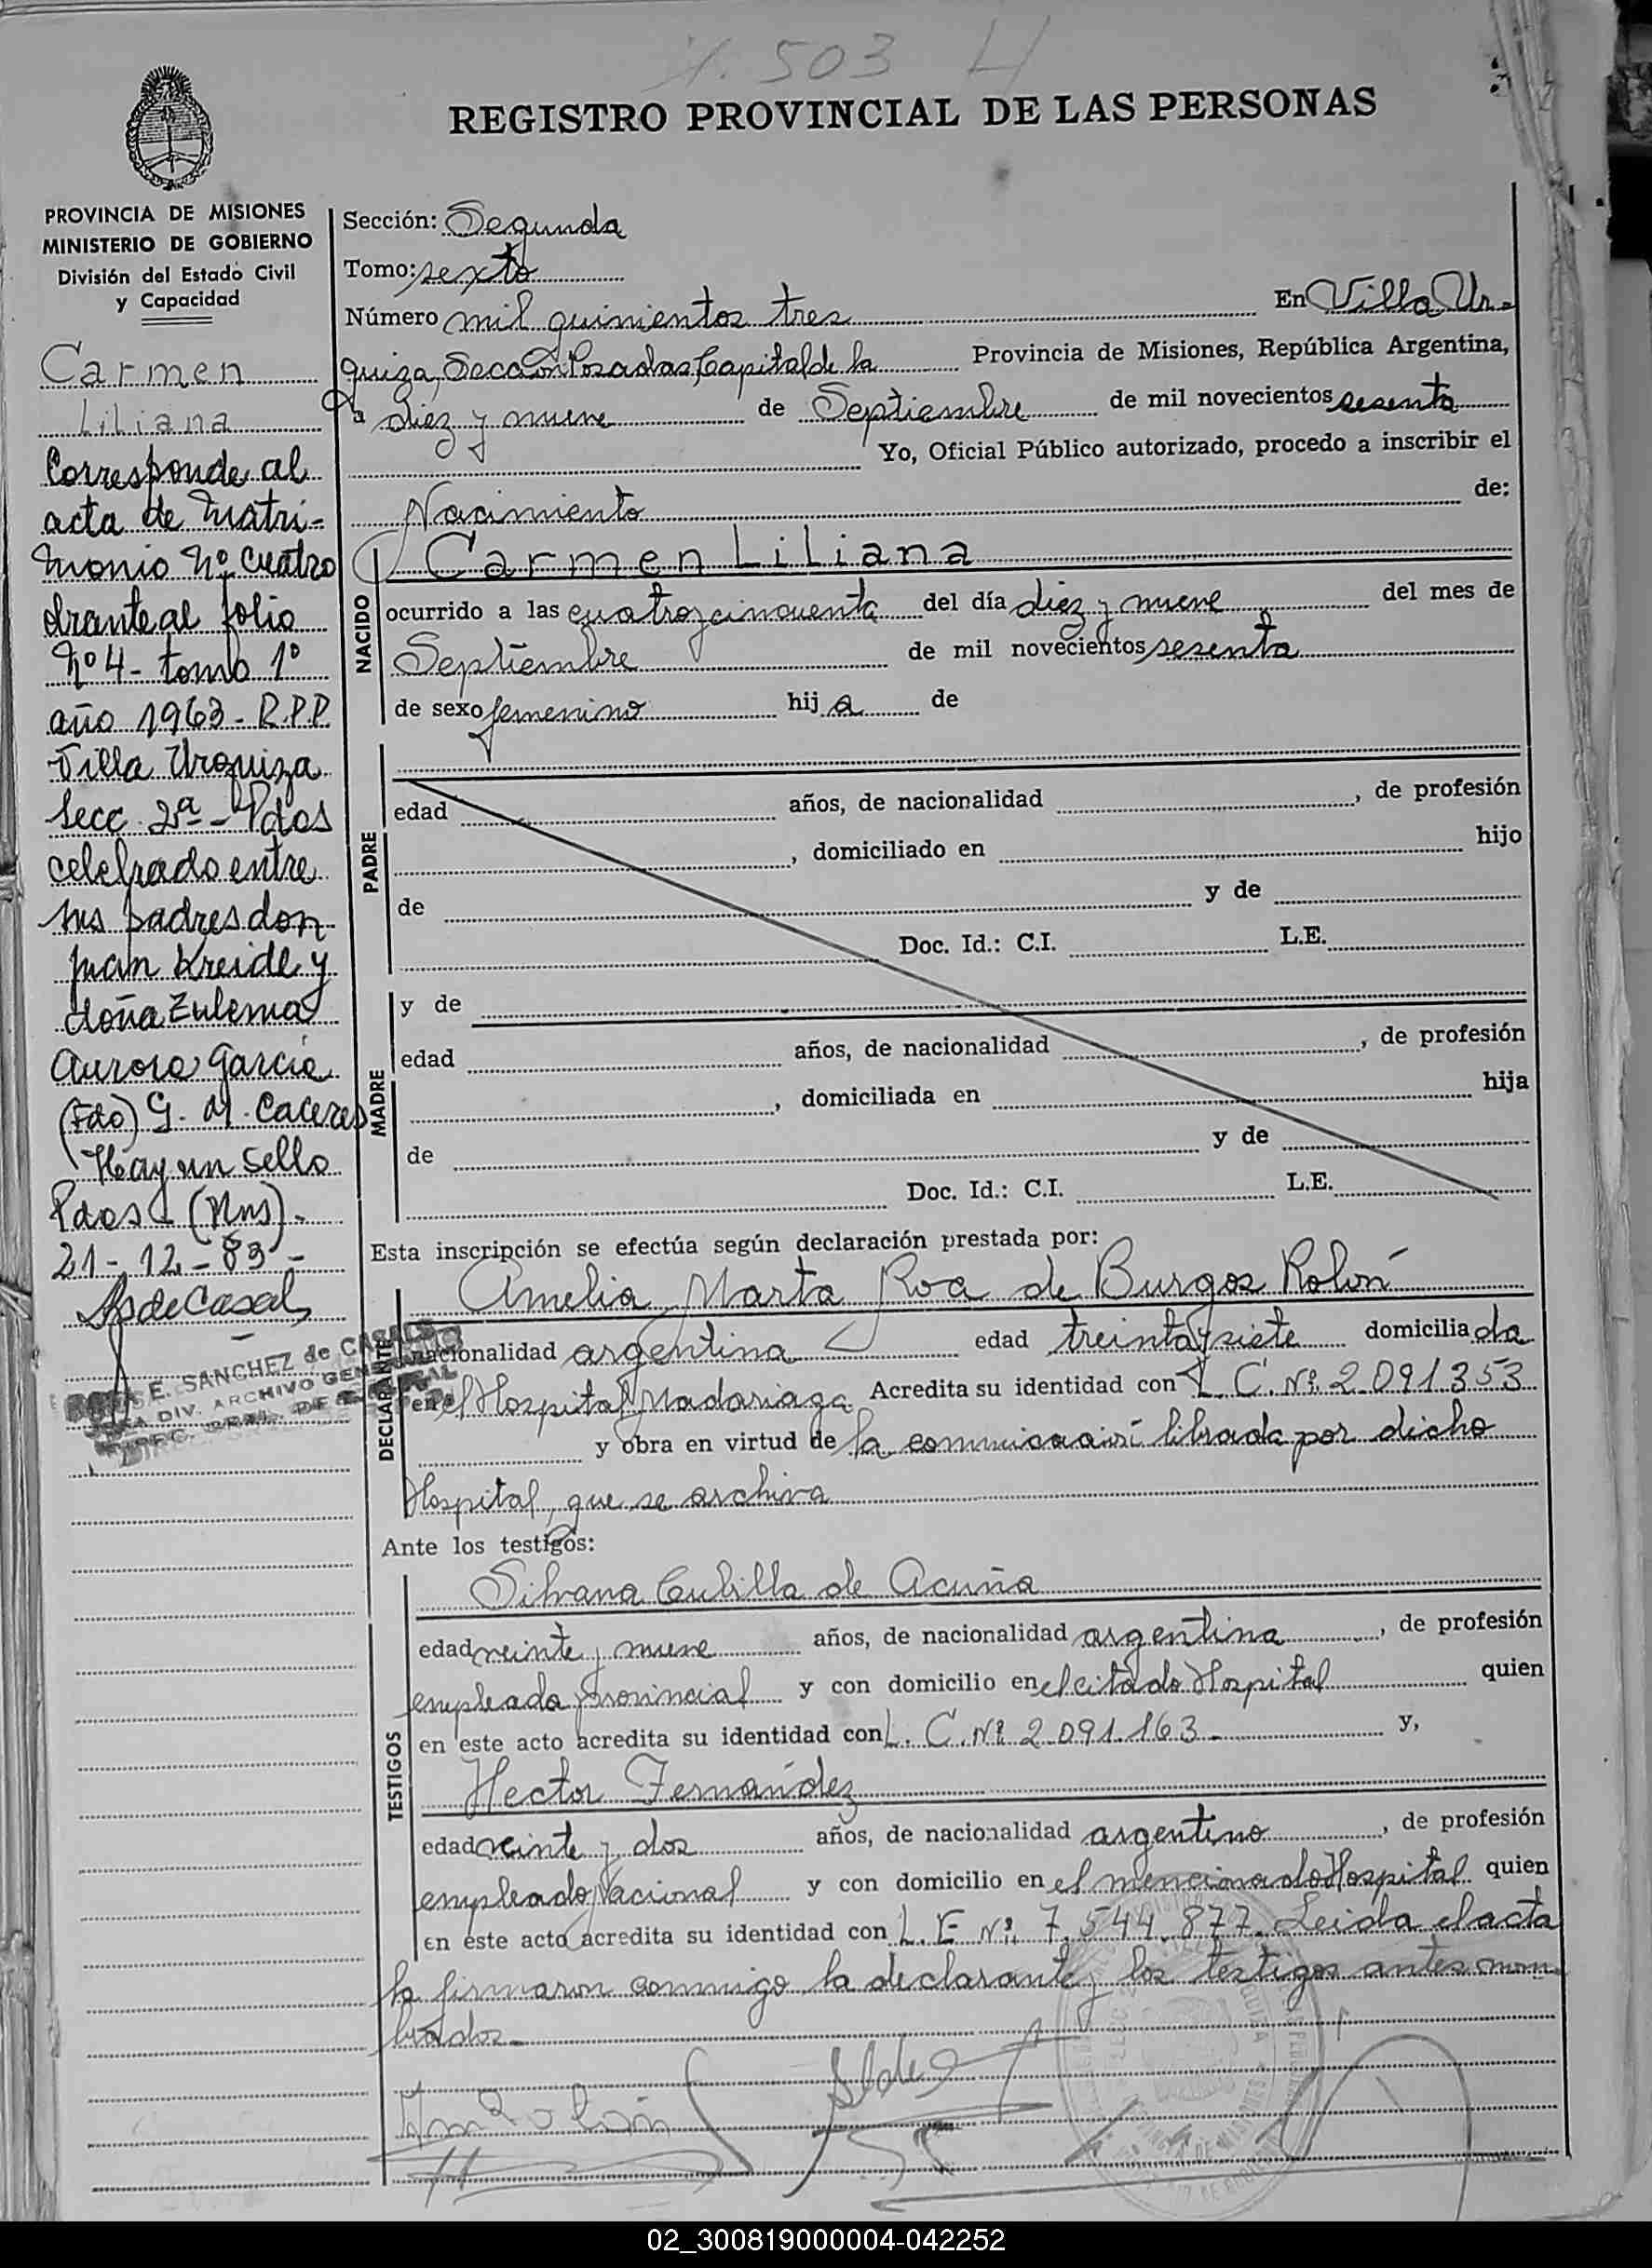 1.503 H
REGISTRO PROVINCIAL DE LAS PERSONAS
PROVINCIA DE MISIONES
MINISTERIO DE GOBIERNO
División del Estado Civil
y Capacidad
Carmen
Liliana
Corresponde al
acta de Matri-
monio Nº cuatro
obrante al folio
Nº 4- tomo 1º
año 1963- R.P.P.
Villa Urquiza
Secc. 2ª- Pdas
celebrado entre
sus padres don
Juan Kreide y
doña Zulema
Aurora García
(Fdo) G. M. Caceres
Hay un sello
Pdas (Mns).
21-12-83-
SdeCasals
E. SANCHEZ de CASALS
DIV. ARCHIVO GENERAL
Sección: Segunda
Tomo: sexto
Número mil quinientos tres En Villa Ur-
quiza, Sección Posadas, Capital de la Provincia de Misiones, República Argentina,
a diez y nueve de Septiembre de mil novecientos sesenta
Yo, Oficial Público autorizado, procedo a inscribir el
Nacimiento de:
NACIDO
Carmen Liliana
ocurrido a las cuatro y cincuenta del día diez y nueve del mes de
Septiembre de mil novecientos sesenta
de sexo femenino hija de
PADRE
edad años, de nacionalidad , de profesión
, domiciliado en hijo
de y de
Doc. Id.: C.I. L.E.
MADRE
y de
edad años, de nacionalidad , de profesión
, domiciliada en hija
de y de
Doc. Id.: C.I. L.E.
Esta inscripción se efectúa según declaración prestada por:
DECLARANTE
Amelia Marta Roa de Burgos Rolón
nacionalidad argentina edad treinta y siete domiciliada
en el Hospital Madariaga Acredita su identidad con L. C. Nº 2.091.353
y obra en virtud de la comunicación librada por dicho
Hospital, que se archiva
Ante los testigos:
TESTIGOS
Silvana Cubilla de Acuña
edad veinte y nueve años, de nacionalidad argentina , de profesión
empleada provincial y con domicilio en el citado Hospital quien
en este acto acredita su identidad con L. C. Nº 2.091.163- y,
Hector Fernández
edad veinte y dos años, de nacionalidad argentino , de profesión
empleado Nacional y con domicilio en el mencionado Hospital quien
en este acto acredita su identidad con L. E Nº 7.544.877. Leida el acta
la firmaron conmigo la declarante y los testigos antes nom-
brados-
02_300819000004-042252